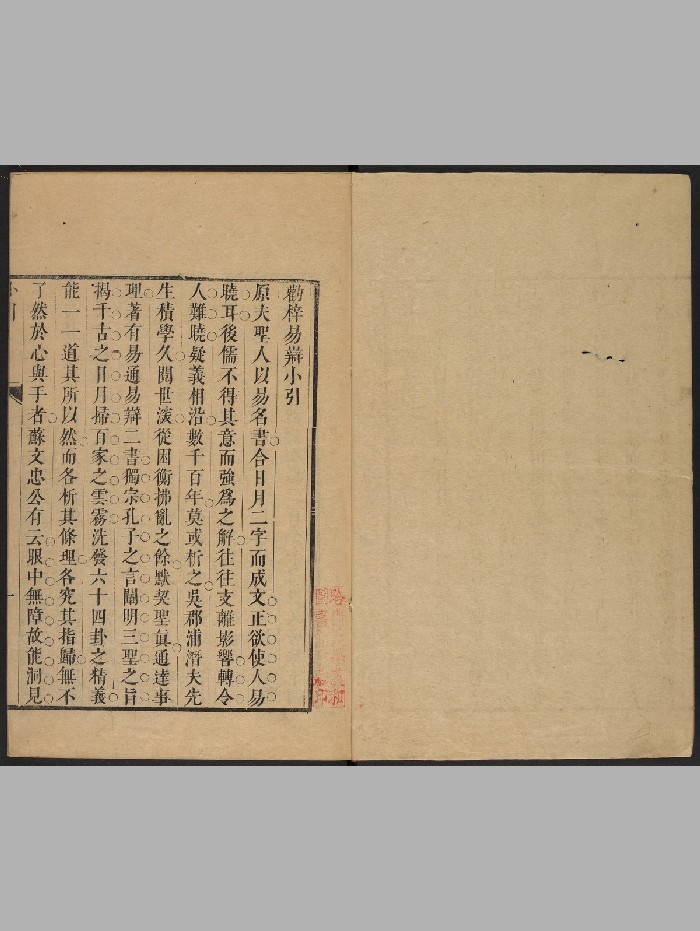 勸梓易辯小引
原夫聖人以易名書合日月二字而成文正欲使人易
曉耳後儒不得其意而強爲之解往往支離影響轉令
人難曉疑義相沿數千百年莫或析之吳郡浦潛夫先
生積學久閱世深從困衡拂亂之餘默契聖眞通達事
理著有易通易辯二書獨宗孔子之言闡明三聖之旨
揭千古之日月掃百家之雲霧洗發六十四卦之精義
能一一道其所以然而各析其條理各究其指歸無不
了然於心與手者蘇文忠公有云眼中無障故能洞見
小引
一